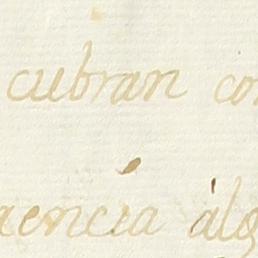 cubran co
aencia àlg